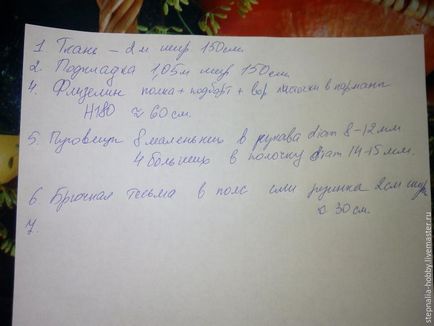 1. Ткань – 2м шир 150см.
2. Подкладка 1,05м шир 150см
4. Флизелин полка + подборт + вор листочки в карманы
H180 ≈ 60см.
5. Пуговицы 8 маленьких в рукава diam 8-12мм
4 больших в полочку diam 14-15мм.
6. Брючная тесьма в пояс или резинка 2см шир
≈ 30см.
7.
stepnalia-hobby.livemaster.ru